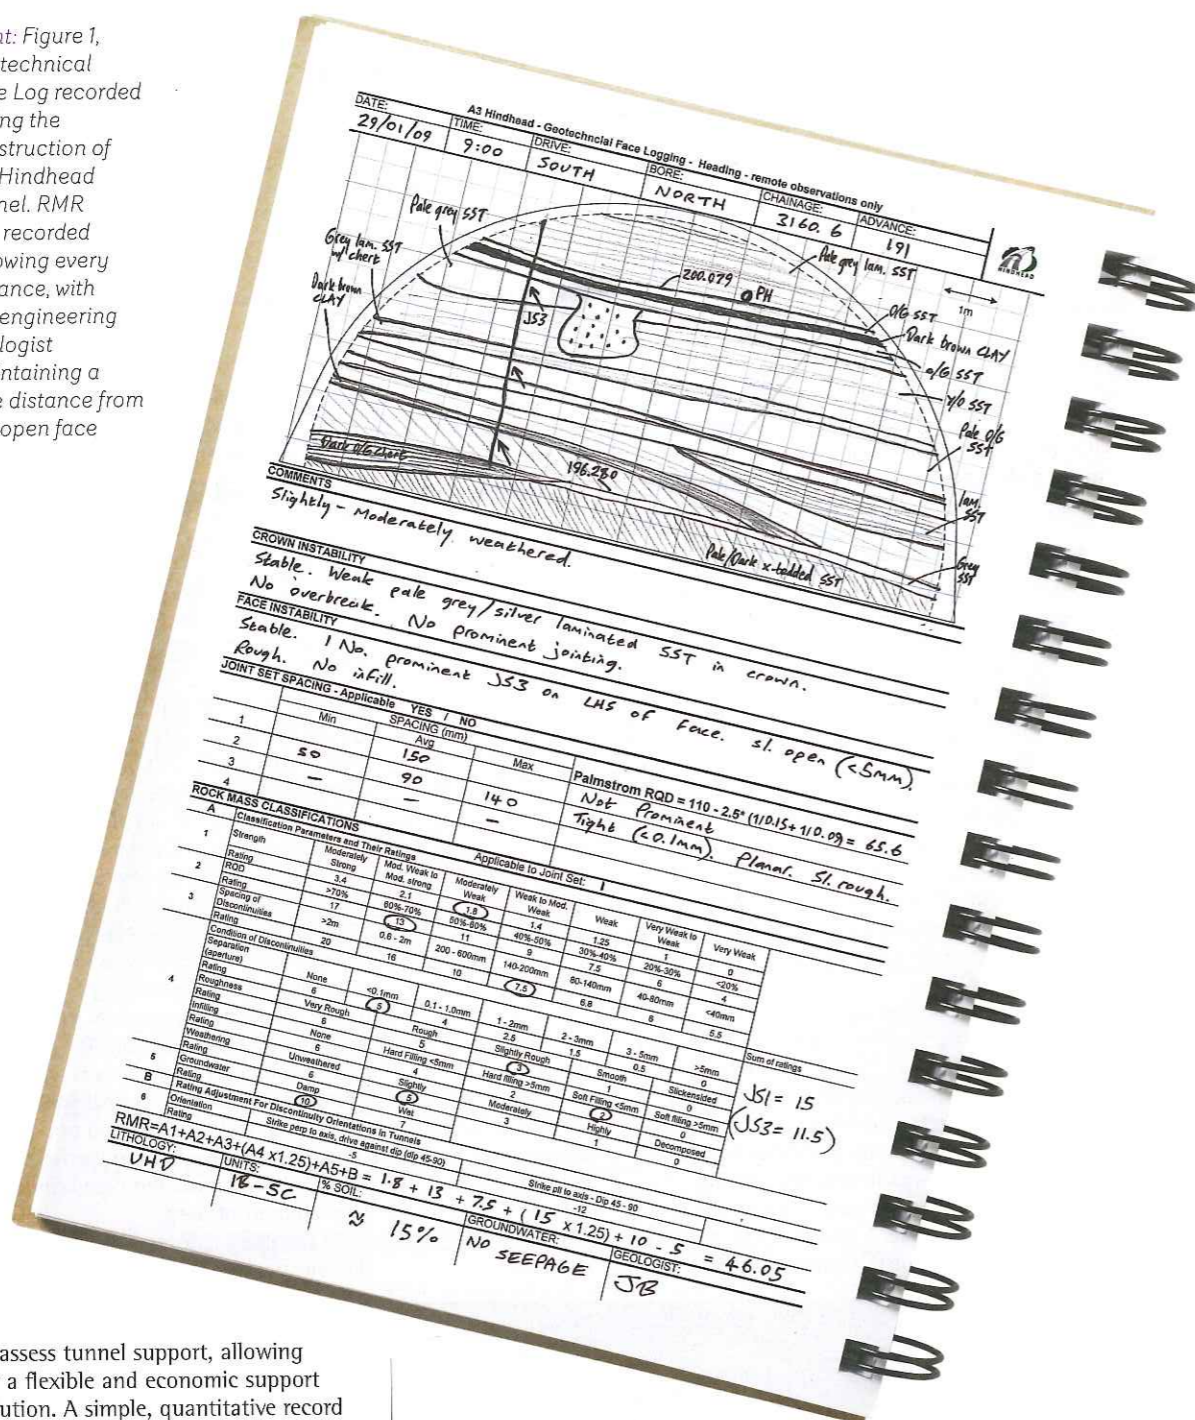 nt: Figure 1,
technical
e Log recorded
ng the
struction of
Hindhead
nel. RMR
recorded
owing every
ance, with
engineering
logist
ntaining a
e distance from
open face
A3 Hindhead - Geotechncial Face Logging - Heading - remote observations only
DATE: TIME: DRIVE: BORE: CHAINAGE: ADVANCE:
29/01/09 9:00 SOUTH NORTH 3160.6 191
HINDHEAD
1m
Pale grey SST
Grey lam. SST
w/ chert
Dark brown
CLAY
JS3
200.079
PH
Pale grey lam. SST
O/G SST
Dark brown CLAY
O/G SST
Y/O SST
Pale O/G
SST
lam.
SST
Grey
SST
Dark O/G Chert
196.280
Pale/Dark x-bedded SST
COMMENTS
Slightly - Moderately weathered.
CROWN INSTABILITY
Stable. Weak pale grey/silver laminated SST in crown.
No overbreak. No prominent jointing.
FACE INSTABILITY
Stable. 1 No. prominent JS3 on LHS of face. sl. open (<5mm).
Rough. No infill.
JOINT SET SPACING - Applicable YES / NO
SPACING (mm)
Min Avg Max
Palmstrom RQD = 110 - 2.5* (1/0.15 + 1/0.09) = 65.6
1 150 Not Prominent
2 50 90 140 Tight (<0.1mm). Planar. Sl. rough.
3 — — —
4
ROCK MASS CLASSIFICATIONS Applicable to Joint Set: 1
A Classification Parameters and Their Ratings
1 Strength Moderately Strong Mod. Weak to Mod. strong Moderately Weak Weak to Mod. Weak Weak Very Weak to Weak Very Weak
Rating 3.4 2.1 1.8 1.4 1.25 1 0
2 RQD >70% 60%-70% 50%-60% 40%-50% 30%-40% 20%-30% <20%
Rating 17 13 11 9 7.5 6 4
3 Spacing of Discontinuities >2m 0.6 - 2m 200 - 600mm 140-200mm 80-140mm 40-80mm <40mm
Rating 20 16 10 7.5 6.8 6 5.5
4 Condition of Discontinuities
Separation (aperture) None <0.1mm 0.1 - 1.0mm 1 - 2mm 2 - 3mm 3 - 5mm >5mm
Rating 6 5 4 2.5 1.5 0.5 0
Roughness Very Rough Rough Slightly Rough Smooth Slickensided
Rating 6 5 3 1 0
Infilling None Hard Filling <5mm Hard filling >5mm Soft Filling <5mm Soft filling >5mm
Rating 6 4 2 2 0
Weathering Unweathered Slightly Moderately Highly Decomposed
Rating 6 5 3 1 0
Sum of ratings
JS1 = 15
(JS3 = 11.5)
5 Groundwater Damp Wet
Rating 10 7
B Rating Adjustment For Discontinuity Orientations in Tunnels
6 Orientation Strike perp to axis, drive against dip (dip 45-90) Strike pll to axis - Dip 45 - 90
Rating -5 -12
RMR=A1+A2+A3+(A4 x1.25)+A5+B = 1.8 + 13 + 7.5 + (15 x 1.25) + 10 - 5 = 46.05
LITHOLOGY: UNITS: % SOIL: GROUNDWATER: GEOLOGIST:
UHD 1B-5C ≈ 15% NO SEEPAGE JB
assess tunnel support, allowing
a flexible and economic support
ution. A simple, quantitative record